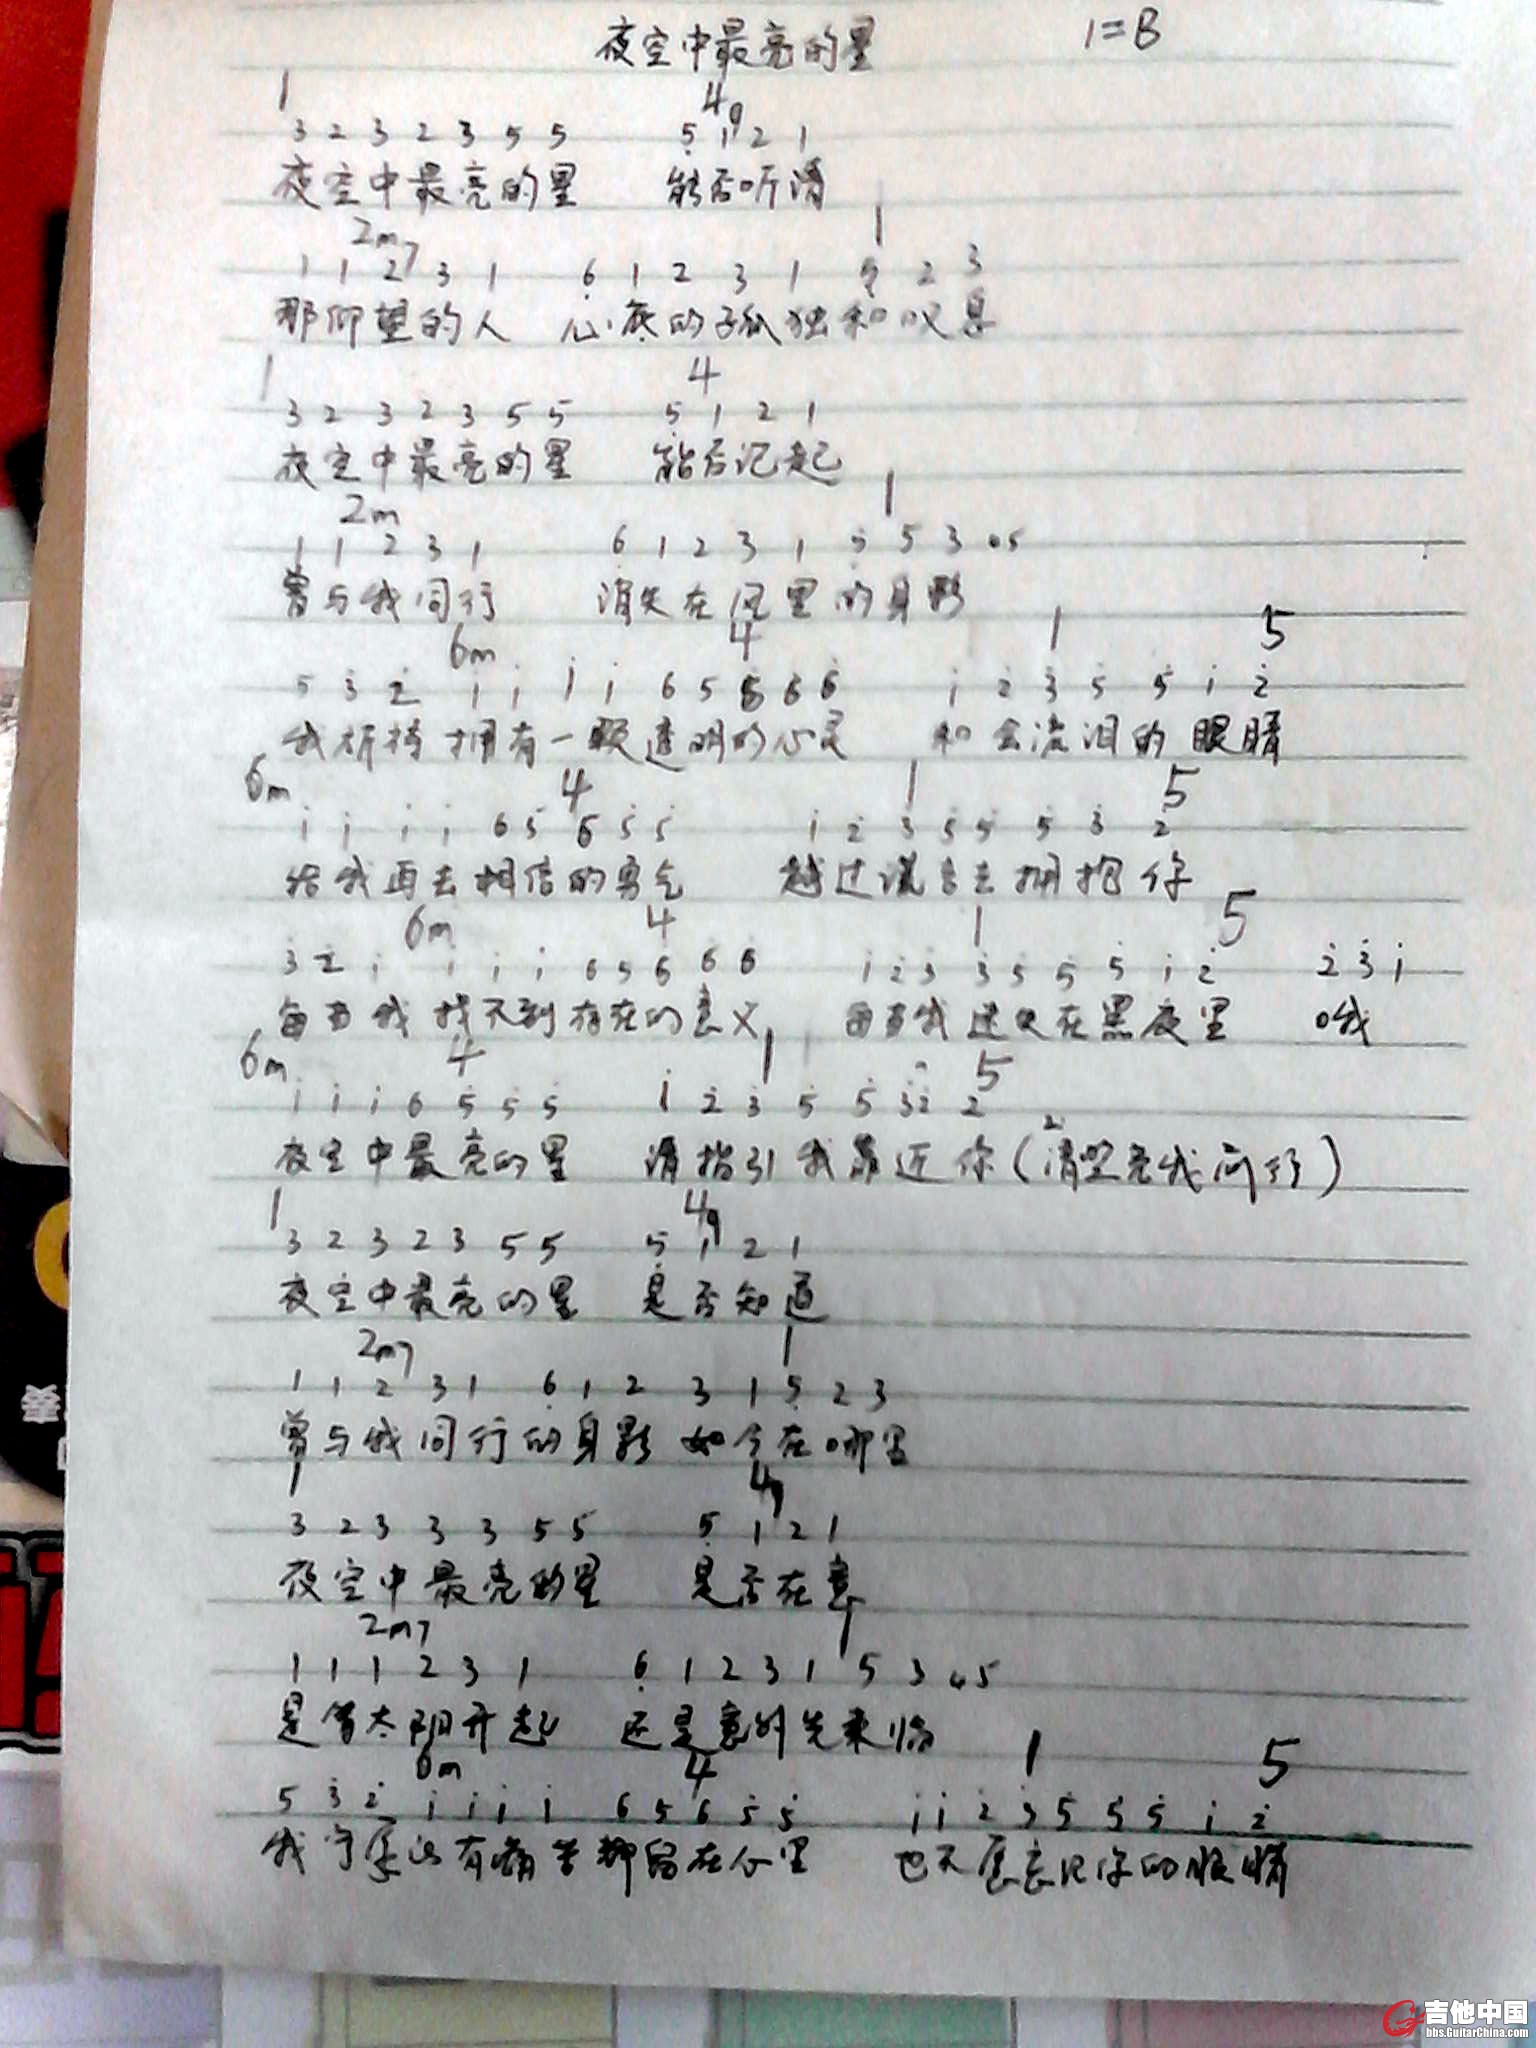 夜空中最亮的星 1=B
1 49
3 2 3 2 3 5 5 5 1 2 1
夜空中最亮的星 能否听清
2m7 1
1 1 2 3 1 6 1 2 3 1 5 2 3
那仰望的人 心底的孤独和叹息
1 4
3 2 3 2 3 5 5 5 1 2 1
夜空中最亮的星 能否记起
2m 1
1 1 2 3 1 6 1 2 3 1 5 5 3 05
曾与我同行 消失在风里的身影
6m 4 1 5
5 3 2 1 1 1 1 6 5 6 6 6 1 2 3 5 5 1 2
我祈祷拥有一颗透明的心灵 和会流泪的眼睛
6m 4 1 5
1 1 1 1 6 5 6 5 5 1 2 3 5 5 5 3 2
给我再去相信的勇气 越过谎言去拥抱你
6m 4 1 5
3 2 1 1 1 1 6 5 6 6 6 1 2 3 3 5 5 5 1 2 2 3 1
每当我找不到存在的意义 每当我迷失在黑夜里 哦
6m 4 1 5
1 1 1 6 5 5 5 1 2 3 5 5 32 2
夜空中最亮的星 请指引我靠近你(请照亮我前行)
1 49
3 2 3 2 3 5 5 5 1 2 1
夜空中最亮的星 是否知道
2m7 1
1 1 2 3 1 6 1 2 3 1 5 2 3
曾与我同行的身影 如今在哪里
1 49
3 2 3 3 3 5 5 5 1 2 1
夜空中最亮的星 是否在意
2m7 1
1 1 1 2 3 1 6 1 2 3 1 5 3 05
是等太阳升起 还是意外先来临
6m 4 1 5
5 3 2 1 1 1 1 6 5 6 5 5 1 1 2 3 5 5 5 1 2
我宁愿所有痛苦都留在心里 也不愿忘记你的眼睛
吉他中国
bbs.GuitarChina.com